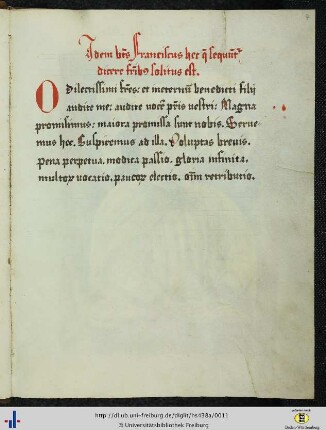 Idem btūs Franciscus hec q̄ sequunt᷑
dicere frīb9 solitus est.
O Dilectissimi frēs: et in eternū benedicti filij
audite me: audite vocē prīs vestri: Magna
promisimus: maiora promissa sunt nobis. Serue-
mus hec. Suspiremus ad illa. Voluptas breuis.
pena perpetua. modica passio. gloria infinita.
multoꝝ vocatio. paucoꝝ electio. oīm retributio.
http://dl.ub.uni-freiburg.de/diglit/hs438a/0011
© Universitätsbibliothek Freiburg